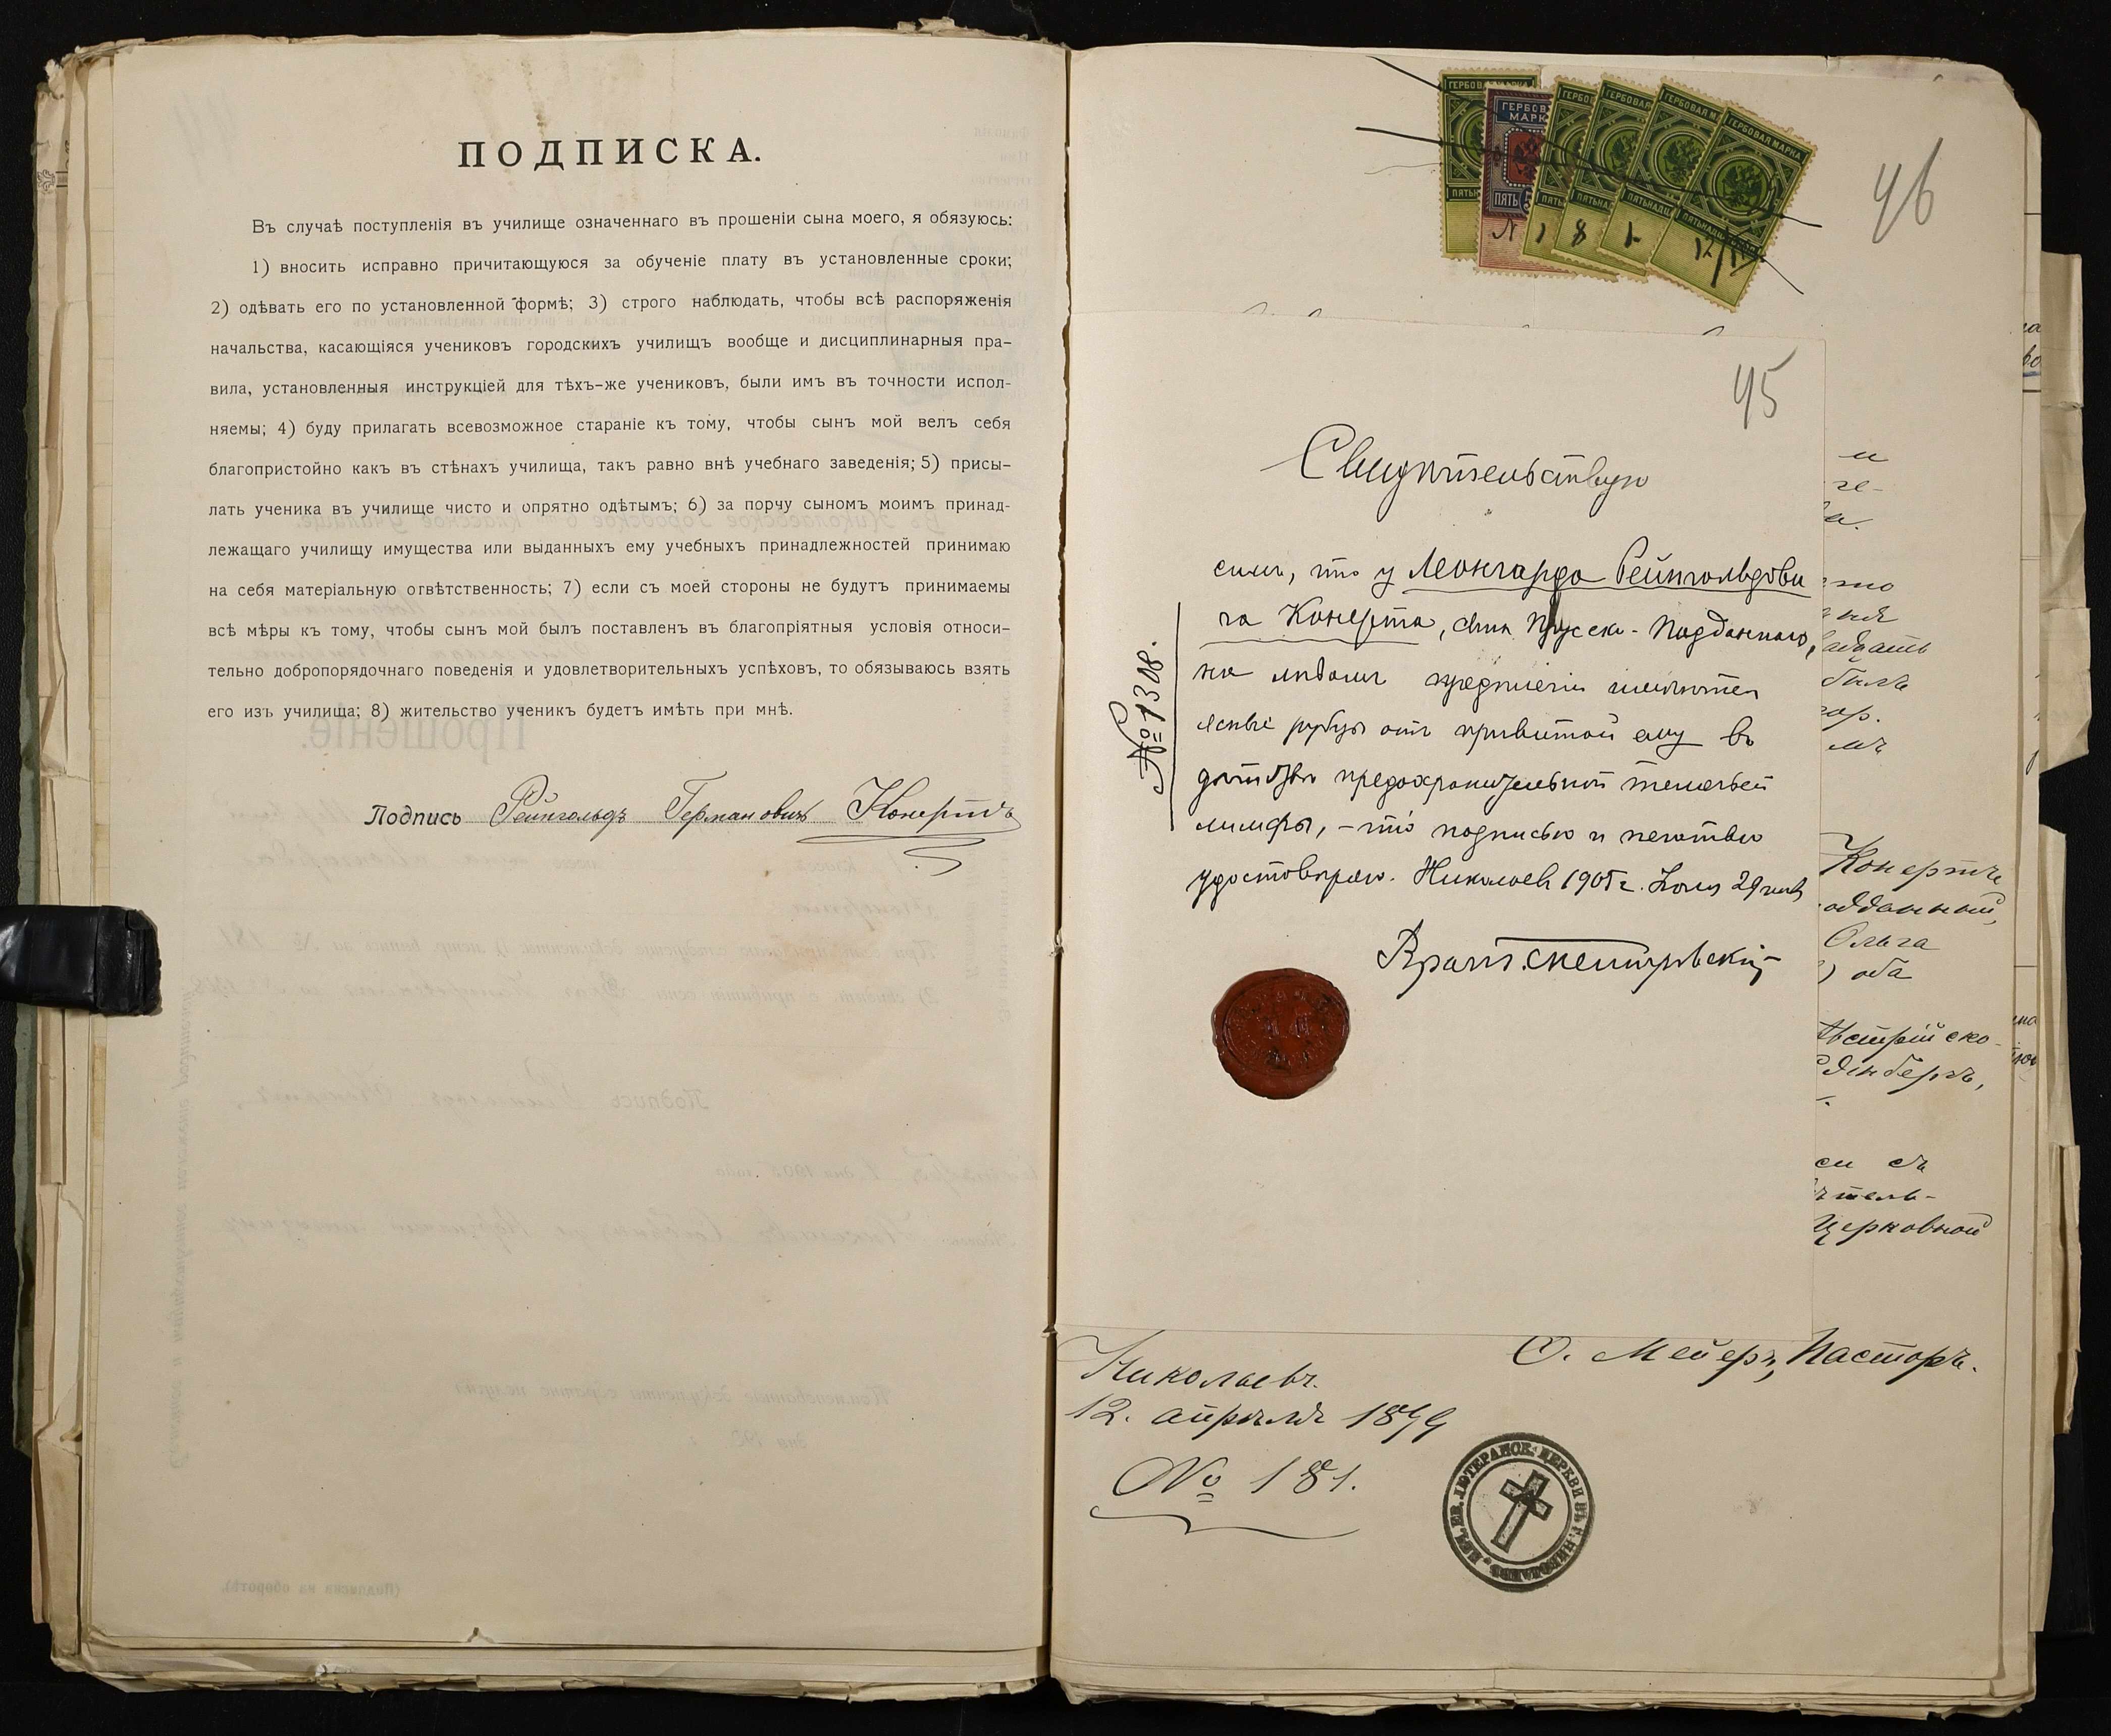 ПОДПИСКА.
Въ случаѣ поступленія въ училище означеннаго въ прошеніи сына моего, я обязуюсь:
1) вносить исправно причитающуюся за обученіе плату въ установленные сроки;
2) одѣвать его по установленной формѣ; 3) строго наблюдать, чтобы всѣ распоряженія
начальства, касающіяся учениковъ городскихъ училищъ вообще и дисциплинарныя пра-
вила, установленныя инструкціей для тѣхъ-же учениковъ, были имъ въ точности испол-
няемы; 4) буду прилагать всевозможное стараніе къ тому, чтобы сынъ мой велъ себя
благопристойно какъ въ стѣнахъ училища, такъ равно внѣ учебнаго заведенія; 5) присы-
лать ученика въ училище чисто и опрятно одѣтымъ; 6) за порчу сыномъ моимъ принад-
лежащаго училищу имущества или выданныхъ ему учебныхъ принадлежностей принимаю
на себя матеріальную отвѣтственность; 7) если съ моей стороны не будутъ принимаемы
всѣ мѣры къ тому, чтобы сынъ мой былъ поставленъ въ благопріятныя условія относи-
тельно добропорядочнаго поведенія и удовлетворительныхъ успѣховъ, то обязываюсь взять
его изъ училища; 8) жительство ученикъ будетъ имѣть при мнѣ.
Подпись Рейнгольдъ Германовичъ Конертъ
ГЕРБОВАЯ МАРКА
46
45
Свидѣтельствую
симъ, что у Леонгарда Рейнгольдови
ча Конерта, сына Прусск-Подданнаго,
на лѣвомъ предплечіи имѣются
ясные рубцы отъ привитой ему въ
дѣтствѣ предохранительной телячьей
лимфы, – что подписью и печатью
удостовѣряю. Николаевъ 1905 г. Іюля 29 дня
№ 1308.
Врачъ
Конертъ
одданный,
Ольга
) оба
Австрійско-
си съ
Церковной
О. Мейеръ, Пасторъ.
Николаевъ.
12. апрѣля 1899
№ 181.
ЕВ. ЛЮТЕРАНСК. ЦЕРКВИ ВЪ Г. НИКОЛАЕВѢ